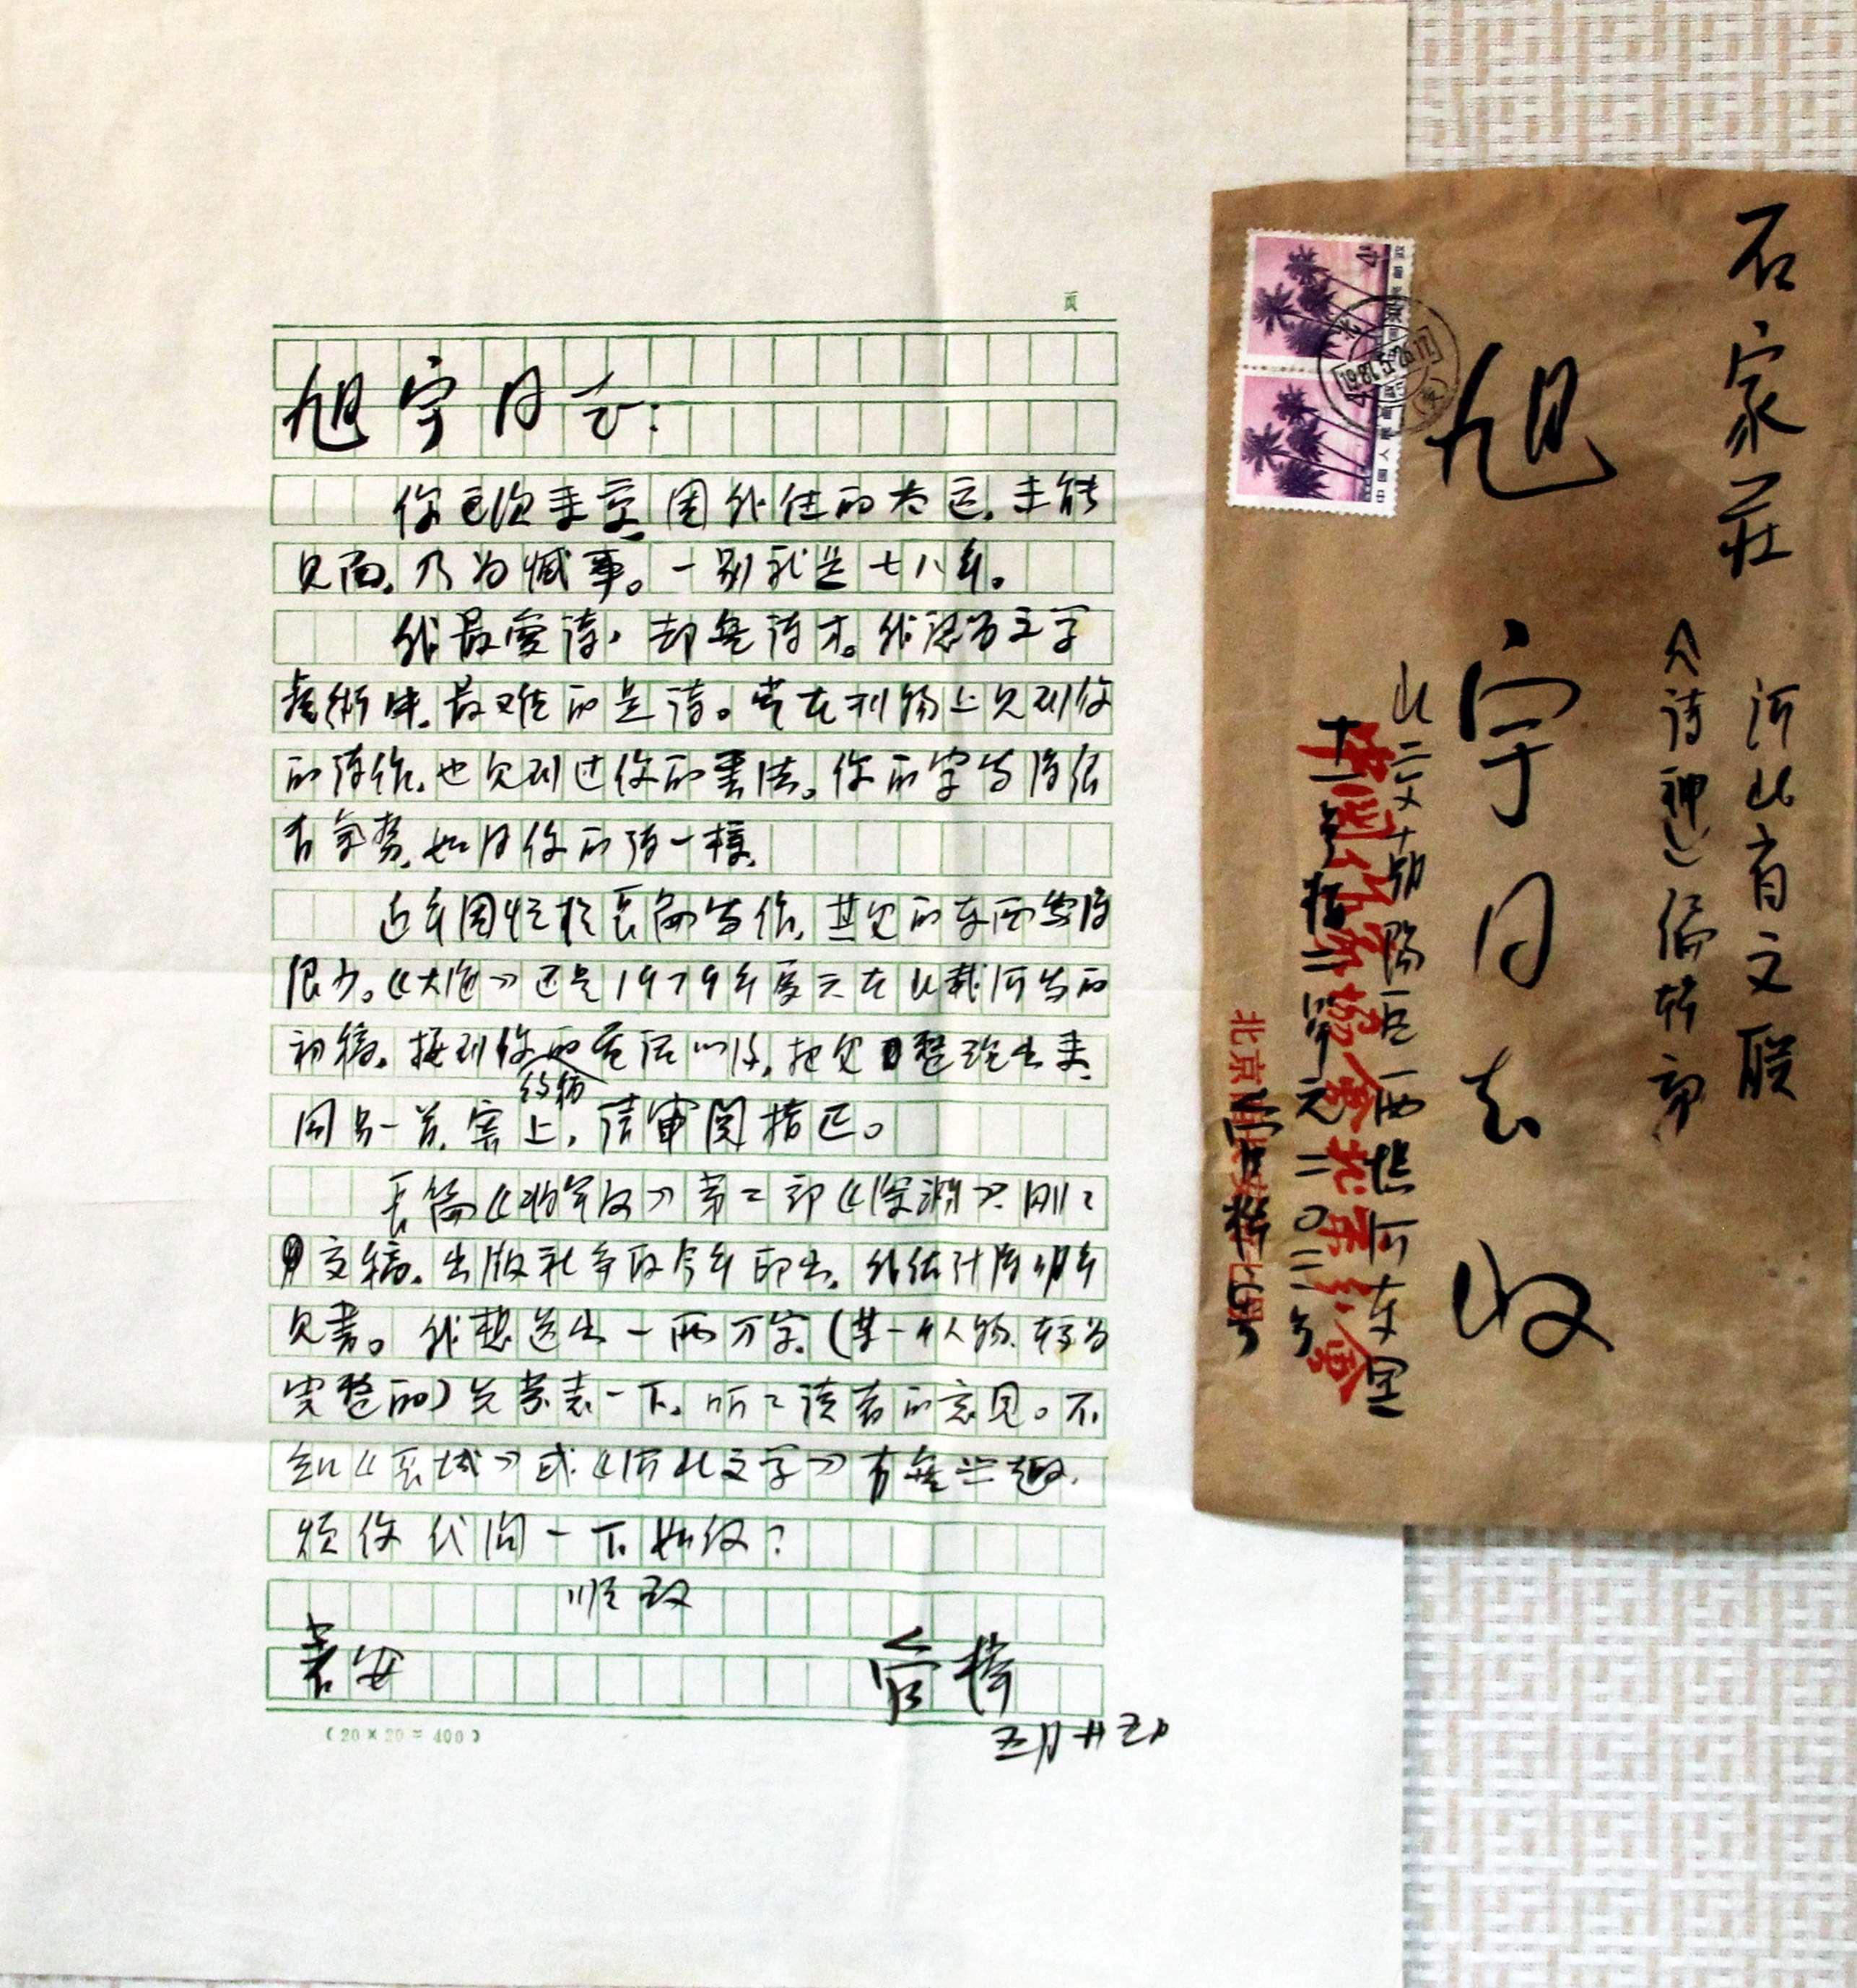 页
旭宇同志：
你这次来京，因我住的太远，未能
见面，乃为憾事。一别就是七八年。
我最爱诗，却无诗才。我认为文学
艺术中，最难的是诗。常在刊物上见到你
的诗作，也见到过你的书法。你的字写得很
有气势，如同你的诗一样。
近年因忙于长篇写作，其它的东西写得
很少。《大海》还是1979年夏天在北戴河写的
初稿。接到你的约稿电话以后，把它整理出来，
同另一首，寄上，请审阅指正。
长篇《将军》第二部《深渊》，刚刚
交稿。出版社争取今年印出，我估计得明年
见书。我想选出一两万字（某一个人物，较为
完整的）先发表一下，听听读者的意见。不
知《长城》或《河北文学》有无兴趣，
烦你代问一下如何？
顺致
著安
管桦
五月廿五日
（20×20＝400）
石家庄
河北省文联
《诗神》编辑部
旭宇同志收
北京朝阳区西坝河东里
十一号楼二单元二〇三号
管桦
中国人民邮政